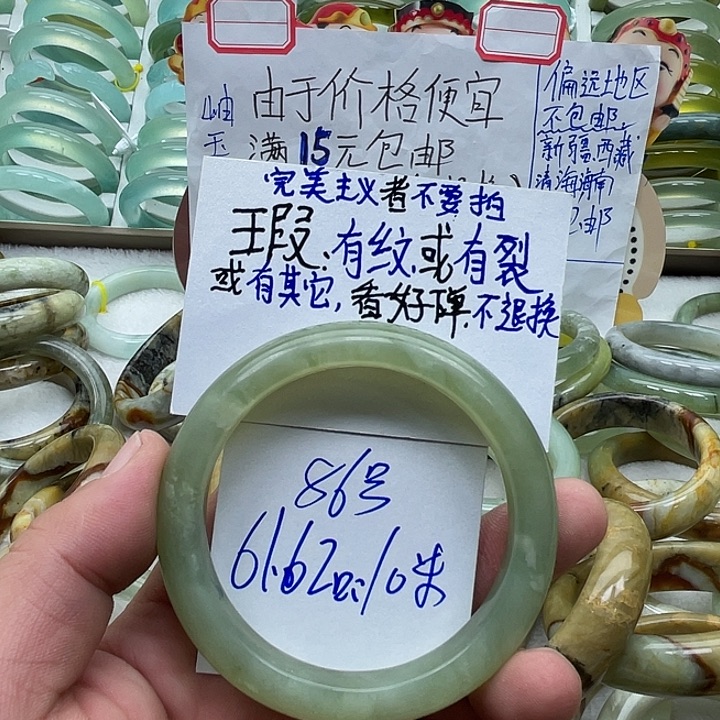 岫玉
由于价格便宜
满15元包邮
偏远地区
不包邮.
新疆.西藏
清海海南
包邮
完美主义者不要拍
瑕:有纹.或有裂
或有其它,看好弹.不退换
86号
61.62口:10米